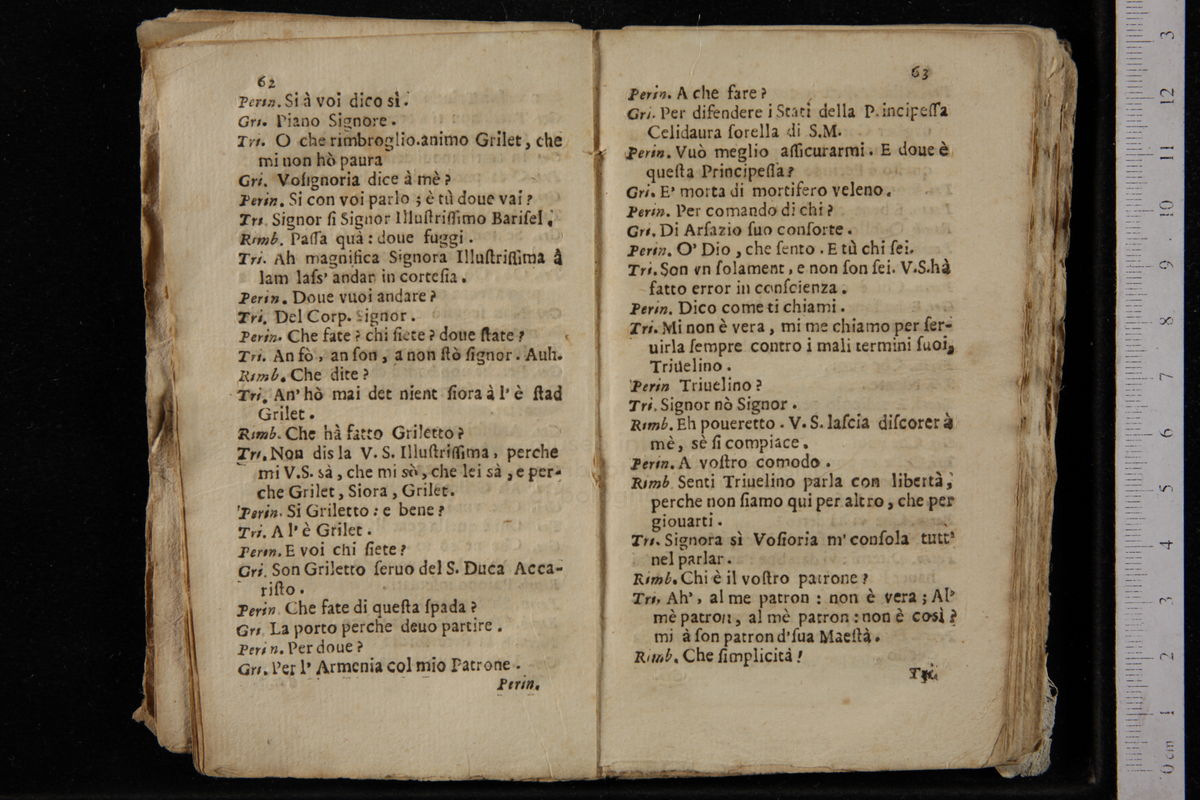 62
Perin. Si à voi dico sì.
Gri. Piano Signore.
Tri. O che rimbroglio.animo Grilet, che
mi non hò paura
Gri. Voſignoria dice à mè?
Perin. Si con voi parlo; è tù doue vai?
Tri. Signor ſi Signor Illuſtriſſimo Bariſel,
Rimb. Paſſa quà: doue fuggi.
Tri. Ah magnifica Signora Illuſtriſſima â
lam laſs' andar in corteſia.
Perin. Doue vuoi andare?
Tri. Del Corp. Signor.
Perin. Che fate? chi ſiete? doue ſtate?
Tri. An fò, an ſon, a non ſtò ſignor. Auh.
Rimb. Che dite?
Tri. An' hò mai det nient ſiora à l' è ſtad
Grilet.
Rimb. Che hà fatto Griletto?
Tri. Non dis la V. S. Illuſtriſſima, perche
mi V.S. sà, che mi sò, che lei sà, e per-
che Grilet, Siora, Grilet.
Perin. Si Griletto: e bene?
Tri. A l' è Grilet.
Perin. E voi chi ſiete?
Gri. Son Griletto ſeruo del S. Duca Acca-
riſto.
Perin. Che fate di queſta ſpada?
Gri. La porto perche deuo partire.
Perin. Per doue?
Gri. Per l' Armenia col mio Patrone.
Perin.
63
Perin. A che fare?
Gri. Per difendere i Stati della P.incipeſſa
Celidaura ſorella di S.M.
Perin. Vuò meglio aſſicurarmi. E doue è
queſta Principeſſa?
Gri. E' morta di mortifero veleno.
Perin. Per comando di chi?
Gri. Di Arſazio ſuo conſorte.
Perin. O' Dio, che ſento. E tù chi ſei.
Tri. Son vn ſolament, e non ſon ſei. V.S.hà
fatto error in conſcienza.
Perin. Dico come ti chiami.
Tri. Mi non è vera, mi me chiamo per ſer-
uirla ſempre contro i mali termini ſuoi,
Triuelino.
Perin Triuelino?
Tri. Signor nò Signor.
Rimb. Eh poueretto. V. S. laſcia diſcorer à
mè, sè ſi compiace.
Perin. A voſtro comodo.
Rimb. Senti Triuelino parla con libertà,
perche non ſiamo qui per altro, che per
giouarti.
Tri. Signora sì Voſioria m' conſola tutt'
nel parlar.
Rimb. Chi è il voſtro patrone?
Tri. Ah', al me patron: non è vera; Al'
mè patron, al mè patron: non è così?
mi à ſon patron d'ſua Maeſtà.
Rimb. Che ſimplicità!
Tri.
0 cm 1 2 3 4 5 6 7 8 9 10 11 12 3